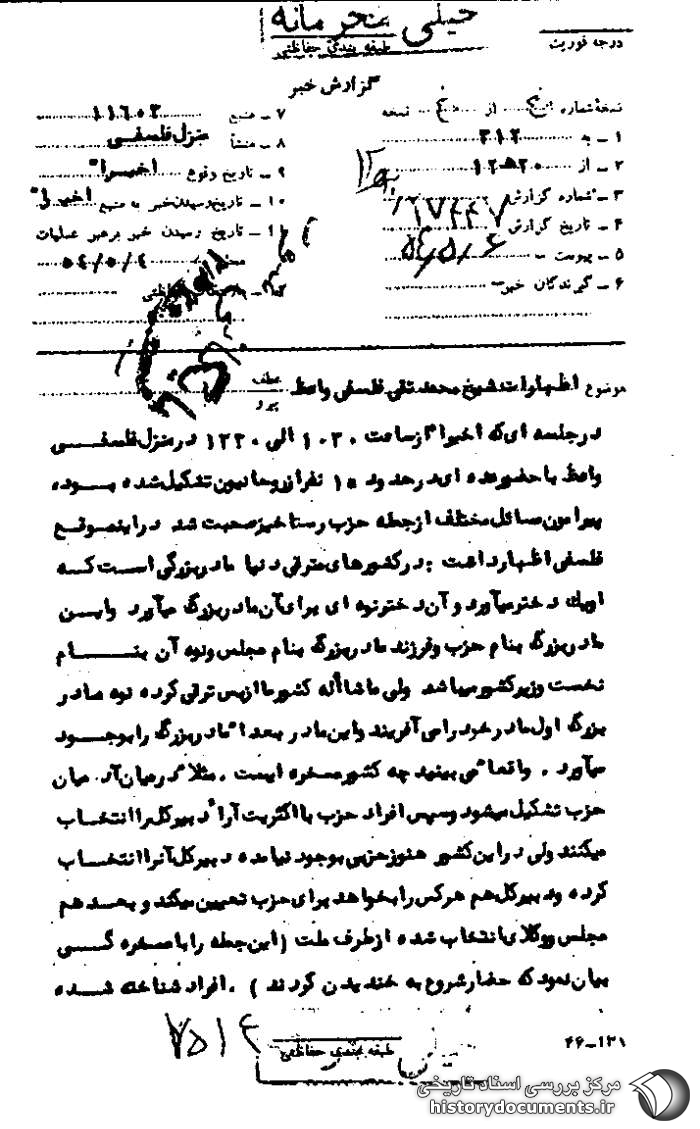 خیلی محرمانه
طبقه بندی حفاظتی
درجه فوریت
گزارش خبر
نسخه شماره از نسخه
۱ – به ۳۱۲
۲ – از ۱۲ ه ۲۰
۳ – شماره گزارش ۱۷۴۴۷
۴ – تاریخ گزارش ۵۴/۵/۶
۵ – پیوست –
۶ – گیرندگان خبر –
۷ – منبع ۱۱۶۰۳
۸ – منشأ منزل فلسفی
۹ – تاریخ وقوع اخیرا"
۱۰ – تاریخ رسیدن خبر به منبع اخیرا"
۱۱ – تاریخ رسیدن خبر برهبر عملیات
۵۴/۵/۴
موضوع اظهارات شیخ محمد تقی فلسفی واعظ
عطف
پیرو
در جلسه ای که اخیرا" از ساعت ۱۰۳۰ الی ۱۲۳۰ در منزل فلسفـــی
واعظ با حضور عده ای در حدود ۱۵ نفر از روحانیون تشکیل شده بـــوده
پیرامون مسائل مختلف از جمله حزب رستاخیز صحبت شد در اینموقع
فلسفی اظهار داشت : در کشورهای مترقی دنیا مادر بزرگی اســت کــه
او یک دختر میآورد و آن دختر نوه ای برای آن مادر بزرگ میآورد وایــن
مادر بزرگ بنام حزب و فرزند مادر بزرگ بنام مجلس و نوه آن بنــــام
نخست وزیر کشور میباشد ولی ماشاالله کشور ما از بس ترقی کرده نوه مــادر
بزرگ اول مادر خود را می آفریند و این مادر بعدا" مادر بزرگ را بوجــود
میآورد . واقعا" می بینید چه کشور مسخره ایست . مثلا" در میان آن میان
حزب تشکیل میشود و سپس افراد حزب با اکثریت آرا" دبیر کل را انتخــاب
میکنند ولی در این کشور هنوز حزبی بوجود نیامده دبیر کل آنرا انتخــاب
کرده و دبیر کل هم هر کس را بخواهد برای حزب تعیین میکند و بعــد هم
مجلس و وکلای انتخاب شده از طرف ملت (این جمله را با مسخره گـــی
بیان نمود که حضار شروع به خندیدن کردند ) . افراد شناخته شــده
۷۵۱۴
طبقه بندی حفاظتی
۱۲۱–۴۶
مرکز بررسی اسناد تاریخی
historydocuments.ir